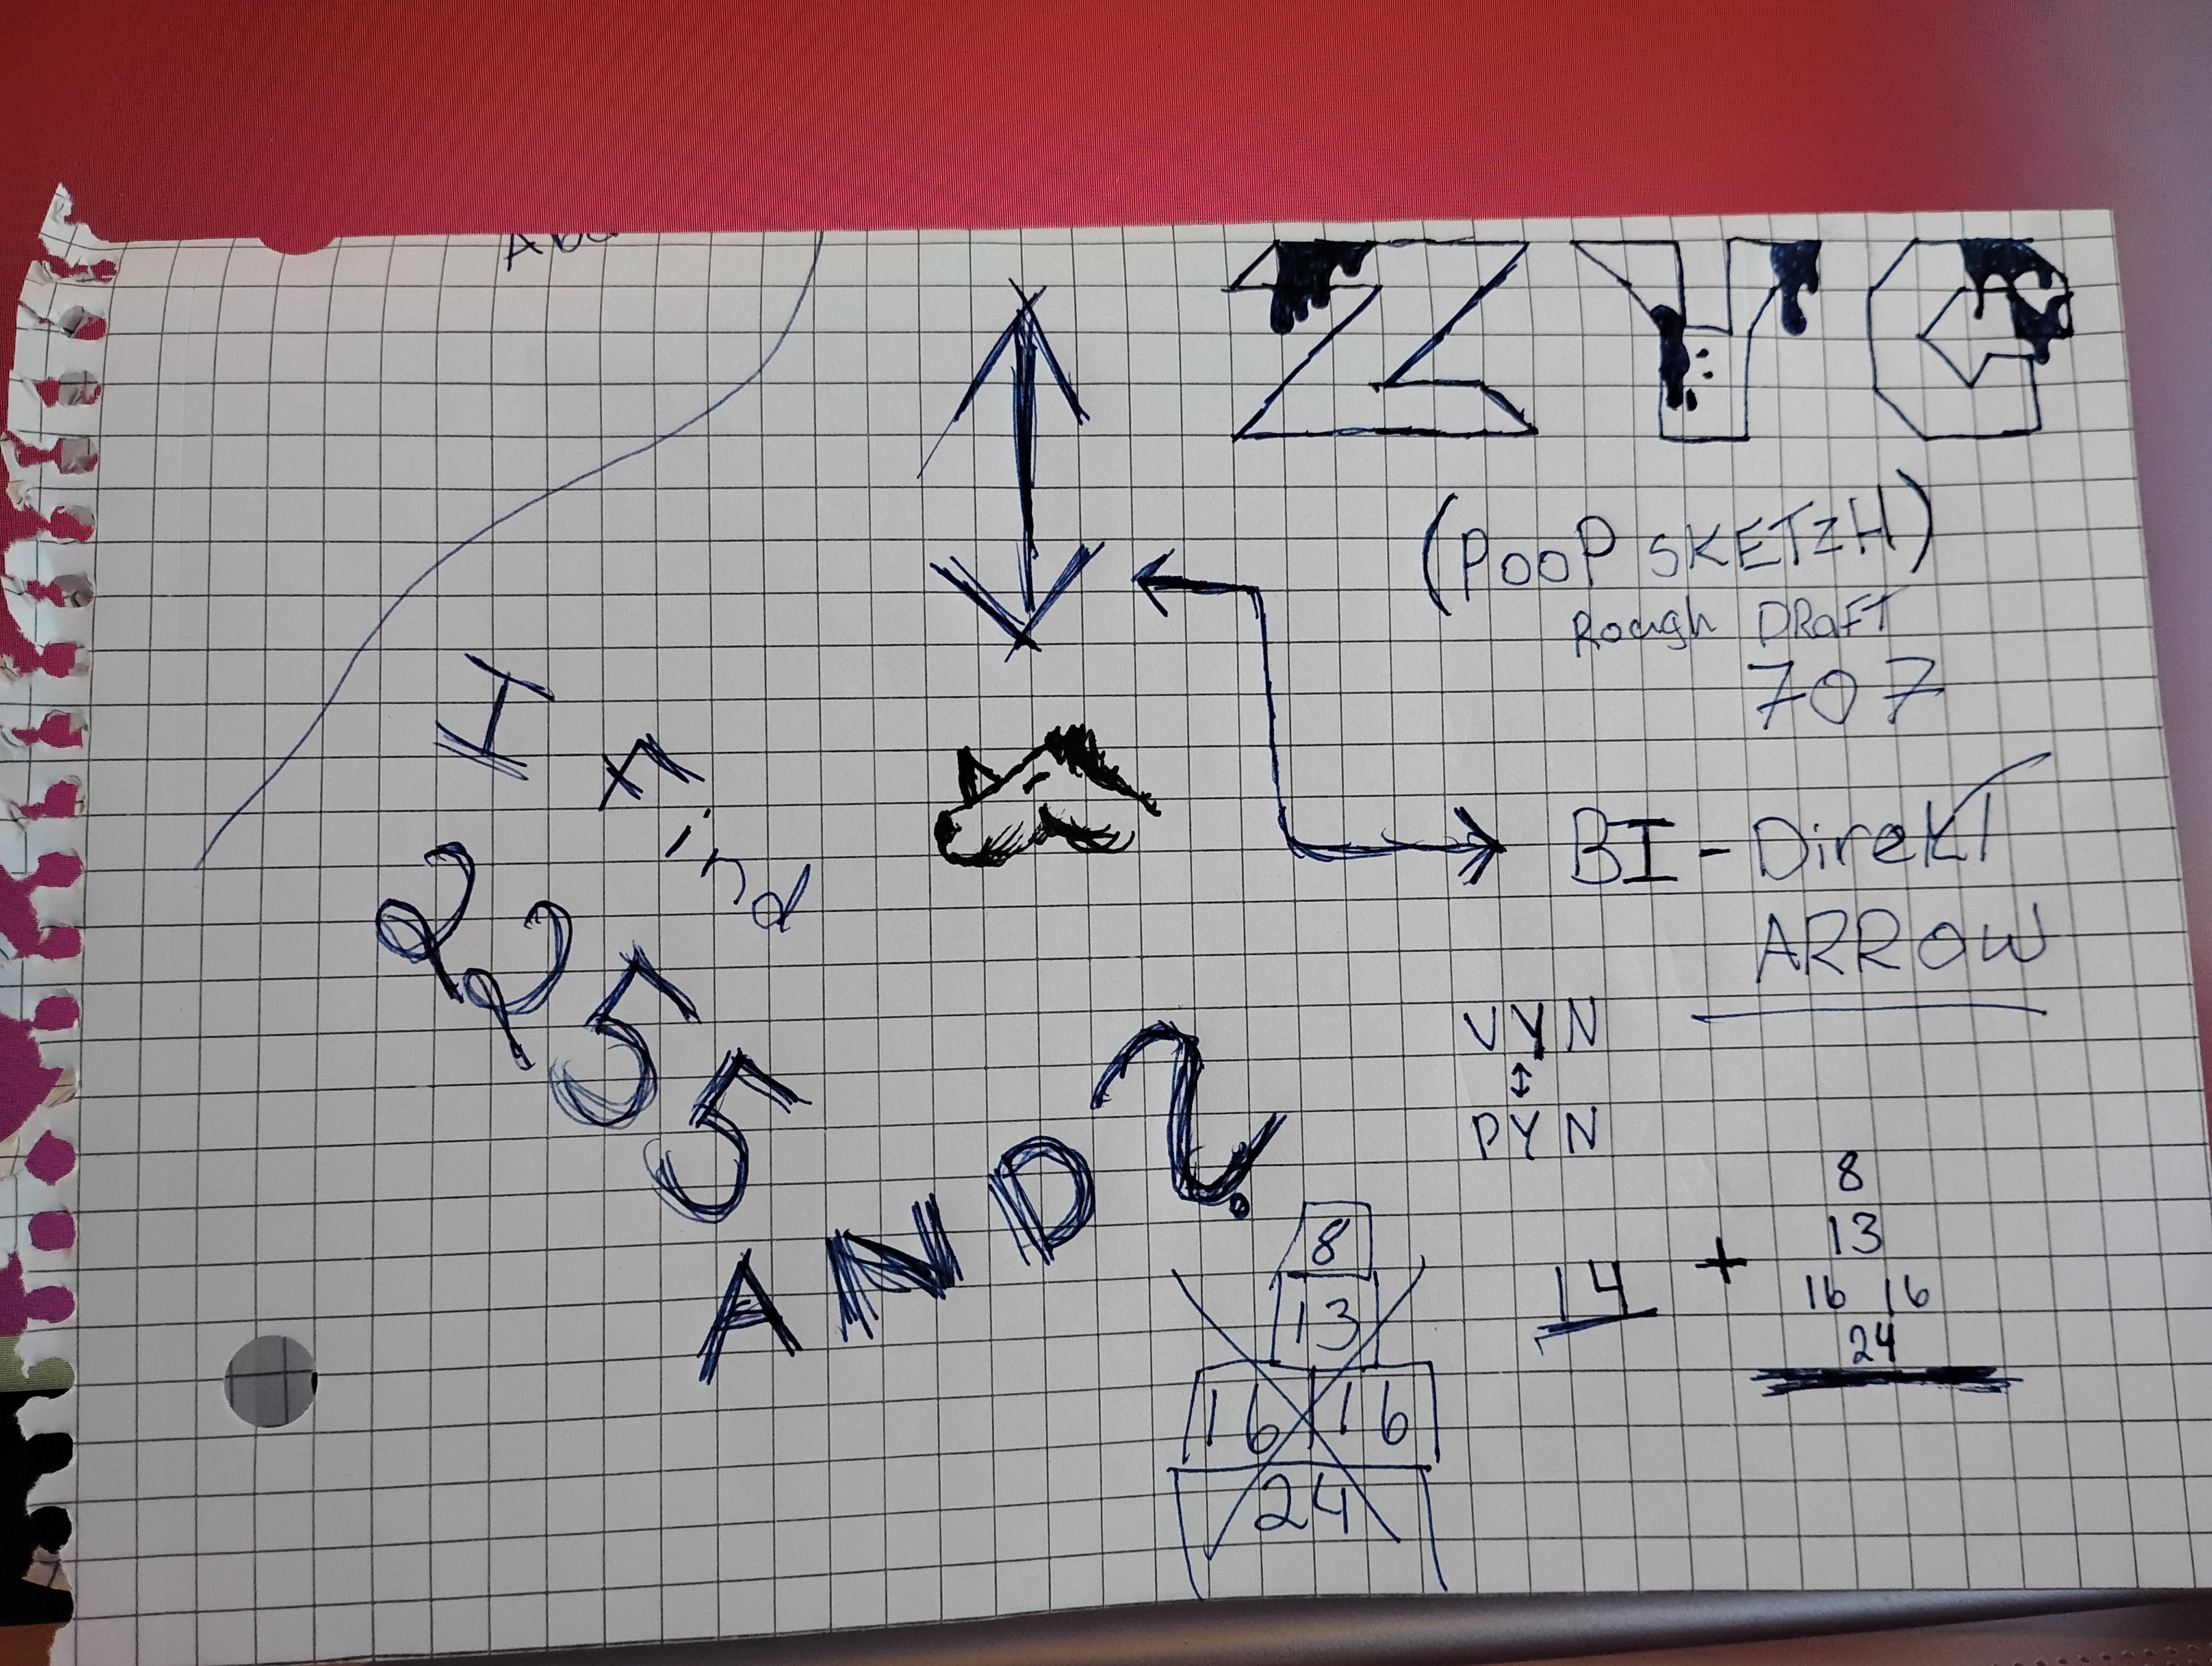 ZYG
(POOP SKETZH)
Rough DRAFT
707
BI-Direkt
ARROW
I
Find
2255
AND?
VYN
↕
PYN
8
13
16 16
24
14 +
8
13
16 16
24